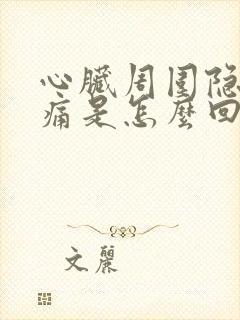 心臟周圍隐
痛是怎麽回
文麗